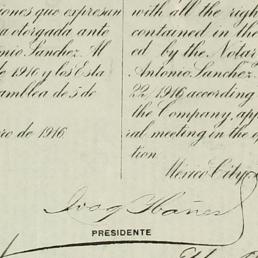 ciones que expresan
a otorgada ante
onio Sanchez. Al
de 1916 y los Esta
amblea de 5 de
ro de 1916
with all the righ
contained in the
ed by the Notar
Antonio Sanchez.
22, 1916, according
the Company, app
ral meeting in the
tion
Mexico City,
PRESIDENTE